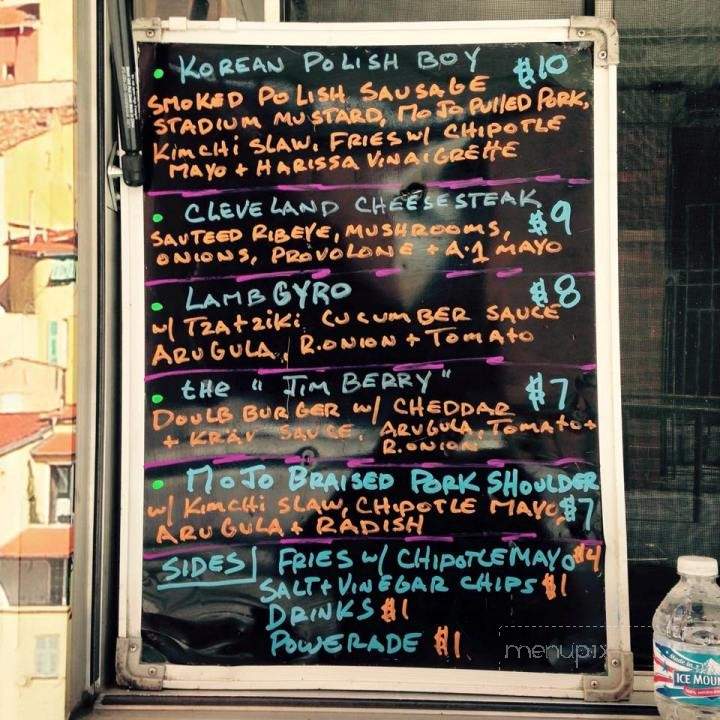 • KOREAN POLISH BOY $10
SMOKED POLISH SAUSAGE
STADIUM MUSTARD, MOJO PULLED PORK,
KIMCHI SLAW, FRIES W/ CHIPOTLE
MAYO + HARISSA VINAIGRETTE
• CLEVELAND CHEESESTEAK $9
SAUTEED RIBEYE, MUSHROOMS,
ONIONS, PROVOLONE + A·1 MAYO
• LAMB GYRO $8
W/ TZATZIKI CUCUMBER SAUCE
ARUGULA, R.ONION + TOMATO
• THE "JIM BERRY" $7
DOULB BURGER W/ CHEDDAR
+ KRÄV SAUCE, ARUGULA, TOMATO +
R.ONION
• MOJO BRAISED PORK SHOULDER
W/ KIMCHI SLAW, CHIPOTLE MAYO, $7
ARUGULA + RADISH
SIDES FRIES W/ CHIPOTLE MAYO $4
SALT + VINEGAR CHIPS $1
DRINKS $1
POWERADE $1
menupix
ICE MOUN